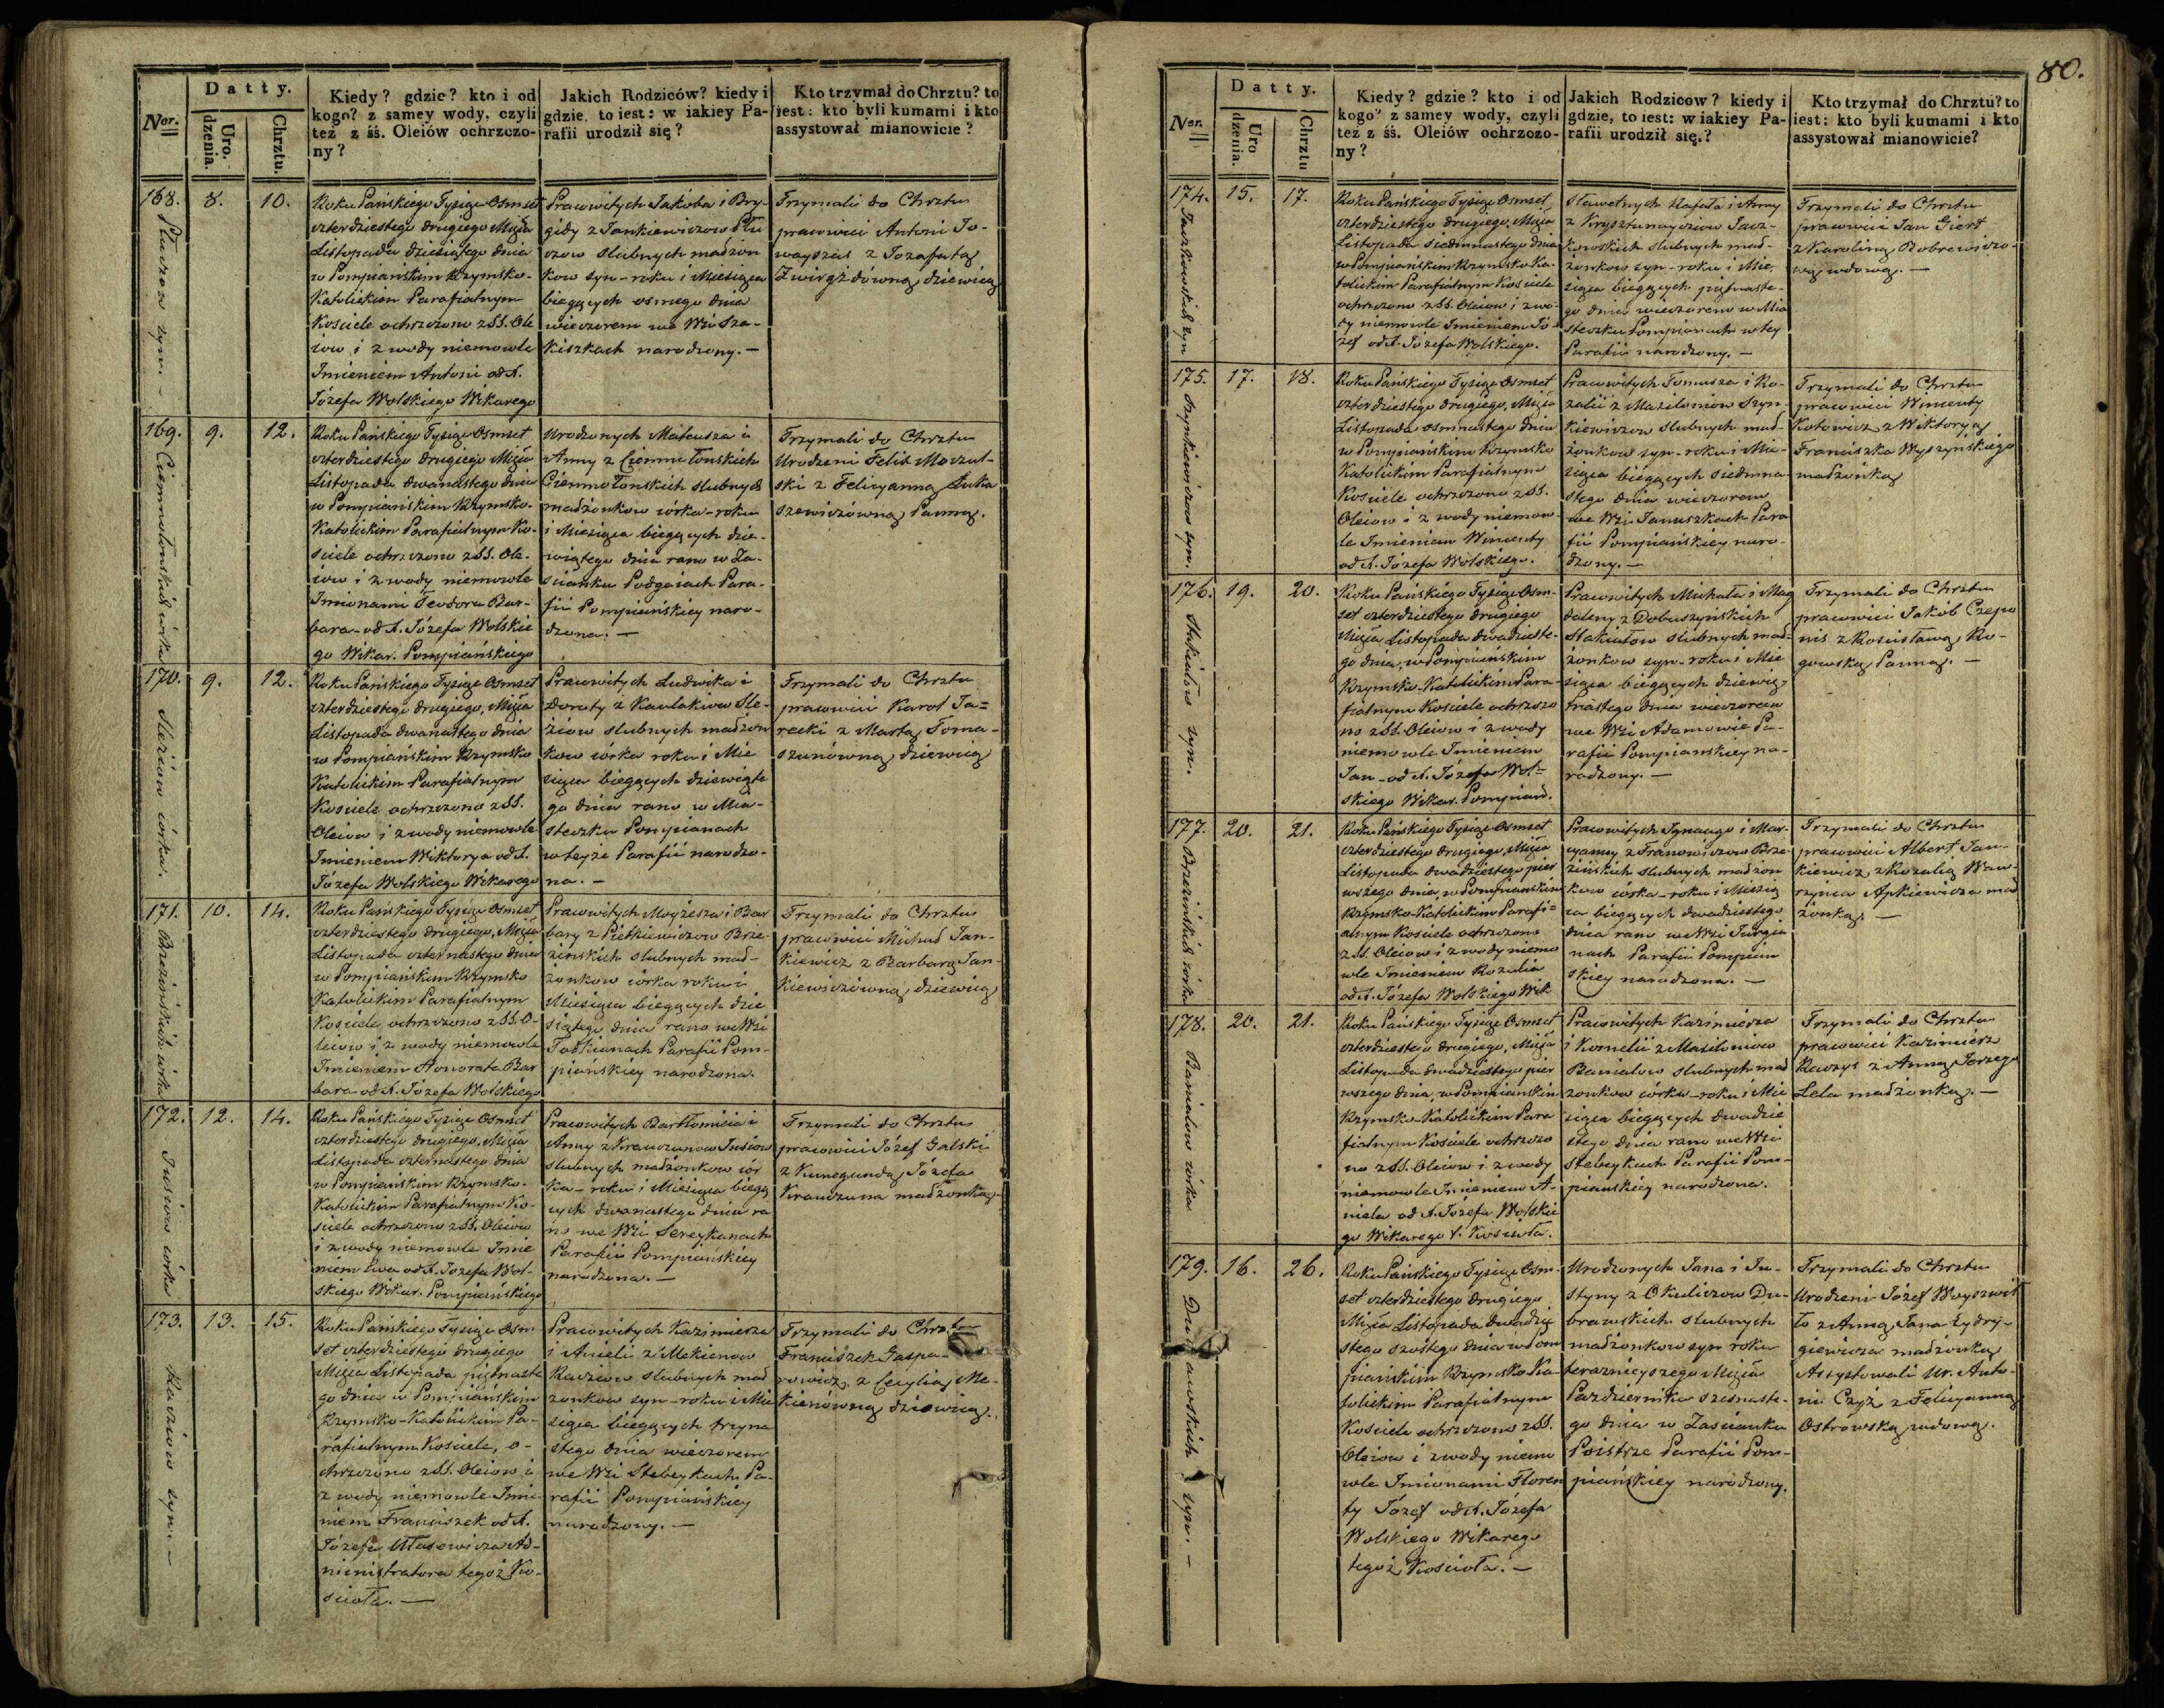 80.
Datty.
Nor.
Uro.
dzenia.
Chrztu.
Kiedy? gdzie? kto i od
kogo? z samey wody, czyli
też z śś. Oleiów ochrzczo-
ny?
Jakich Rodziców? kiedy i
gdzie, to iest: w iakiey Pa-
rafii urodził się?
Kto trzymał do Chrztu? to
iest: kto byli kumami i kto
assystował mianowicie?
168.
syn.
8.
10.
Roku Pańskiego Tysiąc Osmset
czterdziestego drugiego Mięsia
Listopada dziesiątego dnia
w Pompiańskim Rzymsko-
Katolickim Parafialnym
Kościele ochrzczono z SS. Ole
iow i z wody niemowle
Imieniem Antoni od X.
Józefa Wolskiego Wikarego
Pracowitych Jakóba i Bry-
gidy z Jankiewiczow
slubnych małżon
kow syn - roku i Miesiąca
bieżących osmego dnia
wieczorem we Wsi Sza-
kiszkach narodzony. -
Trzymali do Chrztu
pracowici Antoni Jo-
wayszas z Jozafatą
Zwirgżdówną dziewicą
169.
córka
9.
12.
Roku Pańskiego Tysiąc Osmset
czterdziestego drugiego Mięsia
Listopada dwunastego dnia
w Pompiańskim Rzymsko-
Katolickim Parafialnym Ko-
sciele ochrzczono z SS. Ole-
iow i z wody niemowle
Imionami Teodora Bar-
bara - od X. Józefa Wolskie
go Wikar. Pompiańskiego
Urodzonych Mateusza i
Anny z Ciemnołońskich
Ciemnołońskich slubnych
małżonkow córka - roku
i Miesiąca bieżących dzie-
wiątego dnia rano w Za-
scianku Podgaiach Para-
fii Pompiańskiey naro-
dzona. -
Trzymali do Chrztu
Urodzeni Felix Moczul-
ski z Felicyanną Łuka
szewiczówną Panną.
170.
córka.
9.
12.
Roku Pańskiego Tysiąc Osmset
czterdziestego drugiego, Mięsia
Listopada dwunastego dnia
w Pompiańskim Rzymsko
Katolickim Parafialnym
Kościele ochrzczono z SS.
Oleiow i z wody niemowle
Imieniem Wiktorya od X.
Józefa Wolskiego Wikarego
Pracowitych Ludwika i
Doroty z Kaulakiow Sle-
żiow slubnych małżon
kow córka roku i Mie
siąca bieżących dziewiąte
go dnia rano w Mia-
steczku Pompianach
w teyże Parafii narodzo-
na. -
Trzymali do Chrztu
pracowici Karol Ja=
recki z Martą Toma-
szunówną dziewicą
171.
Brzezińskich córka
10.
14.
Roku Pańskiego Tysiąc Osmset
czterdziestego drugiego, Mięsia
Listopada czternastego dnia
w Pompiańskim Rzymsko
Katolickim Parafialnym
Kościele ochrzczono z SS. O-
leiow i z wody niemowle
Imieniem Honorata Bar
bara od X. Józefa Wolskiego
Pracowitych Moyżesza i Bar
bary z Pietkiewiczow Brze-
zińskich slubnych mał-
żonkow córka roku i
Miesiąca bieżących dzie
siątego dnia rano we Wsi
Parafii Pom-
piańskiey narodzona.
Trzymali do Chrztu
pracowici Michał Jan-
kiewicz z Barbarą Jan-
kiewiczówną dziewicą
172.
córka
12.
14.
Roku Pańskiego Tysiąc Osmset
czterdziestego drugiego, Mięsia
Listopada czternastego dnia
w Pompiańskim Rzymsko-
Katolickim Parafialnym Ko-
sciele ochrzczono z SS. Oleiow
i z wody niemowle Imie
niem Ewa od X. Józefa Wol-
skiego Wikar. Pompiańskiego
Pracowitych Bartłomieia i
Anny z Krauczunow
slubnych małżonkow cór
ka - roku i Miesiąca bieżą
cych dwunastego dnia ra
no we Wsi Sereykanach
Parafii Pompiańskiey
narodzona. -
Trzymali do Chrztu
pracowici Józef Galski
z Kunegundą Józefa
Krauczuna małżonką
173.
syn.
13.
15.
Roku Pańskiego Tysiąc Osm-
set czterdziestego drugiego
Mięsia Listopada piętnaste
go dnia w Pompiańskim
Rzymsko-Katolickim Pa-
rafialnym Kościele, o-
chrzczono z SS. Oleiow i
z wody niemowle Imie
niem Franciszek od X.
Józefa Ad-
ministratora tegoż Ko-
scioła. -
Pracowitych Kazimierza
i Anieli z Mekienow
slubnych mał
żonkow syn - roku i Mie
siąca bieżących trzyna
stego dnia wieczorem
we Wsi Stebeykach Pa-
rafii Pompiańskiey
narodzony. -
Trzymali do Chrztu
Franciszek Gaspa-
rowicz z Cecylią Me-
kienówną dziewicą.
Datty.
Nor.
Uro
dzenia.
Chrztu
Kiedy? gdzie? kto i od
kogo? z samey wody, czyli
też z śś. Oleiów ochrzczo-
ny?
Jakich Rodzicow? kiedy i
gdzie, to iest: w iakiey Pa-
rafii urodził się.?
Kto trzymał do Chrztu? to
iest: kto byli kumami i kto
assystował mianowicie?
174.
Jaczkowskich syn
15.
17.
Roku Pańskiego Tysiąc Osmset
czterdziestego drugiego, Mięsia
Listopada siedmnastego dnia
w Pompiańskim Rzymsko Ka-
tolickim Parafialnym Kościele
ochrzczono z SS. Oleiow i z wo-
dy niemowle Imieniem Jó-
zef od X. Józefa Wolskiego.
Sławetnych Rafała i Anny
z Jacz-
kowskich slubnych mał-
żonkow syn - roku i Mie-
siąca bieżących piętnaste-
go dnia wieczorem w Mia
steczku Pompianach w tey
Parafii narodzony. -
Trzymali do Chrztu
pracowici Jan Giert
z Karoliną Bobrewiczo-
wą wdową. -
175.
Szynkiewiczow syn.
17.
18.
Roku Pańskiego Tysiąc Osmset
czterdziestego drugiego, Mięsia
Listopada osmnastego dnia
w Pompiańskim Rzymsko
Katolickim Parafialnym
Kościele ochrzczono z SS.
Oleiow i z wody niemow-
le Imieniem Wincenty
od X. Józefa Wolskiego.
Pracowitych Tomasza i Ro-
zalii z Masiloniow Szyn-
kiewiczow slubnych mał-
żonkow syn - roku i Mie-
siąca bieżących siedmna
stego dnia wieczorem
we Wsi Januszkach Para
fii Pompiańskiey naro-
dzony. -
Trzymali do Chrztu
pracowici Wincenty
Kotowicz z Wiktoryą
Franciszka Wyszyńskiego
małżonką
176.
syn.
19.
20.
Roku Pańskiego Tysiąc Osm-
set czterdziestego drugiego
Mięsia Listopada dwudzieste-
go dnia, w Pompiańskim
Rzymsko-Katolickim Para-
fialnym Kościele ochrzczo
no z SS. Oleiow i z wody
niemowle Imieniem
Jan - od X. Józefa Wol=
skiego Wikar. Pompiań.
Pracowitych Michała i Mag
daleny z Dobuszyńskich
slubnych mał=
żonkow syn - roku i Mie
siąca bieżących dziewię-
tnastego dnia wieczorem
we Wsi Adamowie Pa-
rafii Pompiańskiey na-
rodzony. -
Trzymali do Chrztu
pracowici Jakób Czepo
nis z Rosisławą Ro-
gowską Panną. -
177.
Brzezińskich córka
20.
21.
Roku Pańskiego Tysiąc Osmset
czterdziestego drugiego, Mięsia
Listopada dwudziestego pier
wszego dnia, w Pompiańskim
Rzymsko-Katolickim Parafi=
alnym Kościele ochrzczono
z SS. Oleiow i z wody niemo
wle Imieniem Rozalia
od X. Józefa Wolskiego Wik
Pracowitych Ignacego i Mar-
cyanny z Franowiczow Brze-
zińskich slubnych małżon
kow córka - roku i Miesią
ca bieżących dwudziestego
dnia rano we Wsi
Parafii Pompiań
skiey narodzona. -
Trzymali do Chrztu
pracowici Albert Jan-
kiewicz z Rozalią Waw-
rzyńca mał
żonką. -
178.
córka
20.
21.
Roku Pańskiego Tysiąc Osmset
czterdziestego drugiego, Mięsia
Listopada dwudziestego pier
wszego dnia, w Pompiańskim
Rzymsko-Katolickim Para
fialnym Kościele ochrzczo
no z SS. Oleiow i z wody
niemowle Imieniem A-
niela od X. Józefa Wolskie
go Wikarego t. Kościoła.
Pracowitych Kazimierza
i Kornelii z Masiloniow
slubnych mał
żonkow córka - roku i Mie
siąca bieżących dwudzie
stego dnia rano we Wsi
Stebeykach Parafii Pom-
piańskiey narodzona.
Trzymali do Chrztu
pracowici Kazimierz
z Anną Jerzego
Lela małżonką. -
179.
syn. -
16.
26.
Roku Pańskiego Tysiąc Osm-
set czterdziestego drugiego
Mięsia Listopada dwudzie
stego szóstego dnia w Pom
piańskim Rzymsko Ka
tolickim Parafialnym
Kościele ochrzczono z SS.
Oleiow i z wody niemo
wle Imionami Floren
ty Józef od X. Józefa
Wolskiego Wikarego
tegoż Kościoła. -
Urodzonych Jana i Ju-
styny z Okuliczow Du-
brawskich slubnych
małżonkow syn roku
teraznieyszego Mięsia
Pazdziernika szesnaste-
go dnia w Zascianku
Poistrze Parafii Pom-
piańskiey narodzony.
Trzymali do Chrztu
Urodzeni Józef Woyszwił
ło z Anną Jana Żydry-
giewicza małżonką
Assystowali Ur. Anto-
ni Czyż z Felicyanną
Ostrowską wdową.